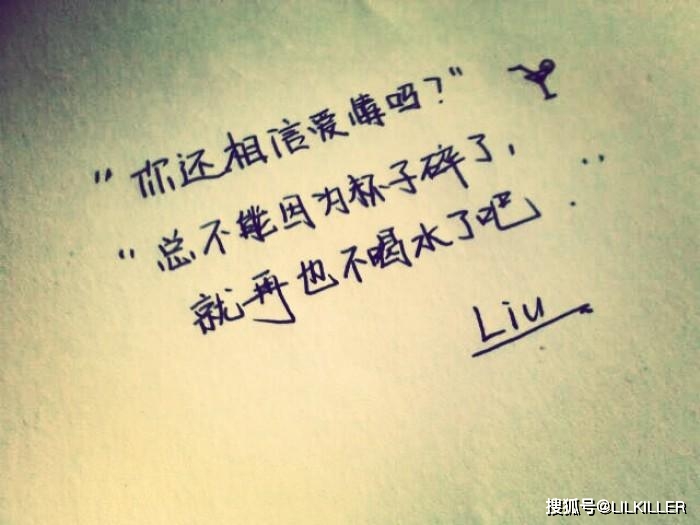 “你还相信爱情吗？”
“总不能因为杯子碎了，
就再也不喝水了吧．”
Liu
搜狐号@LILKILLER